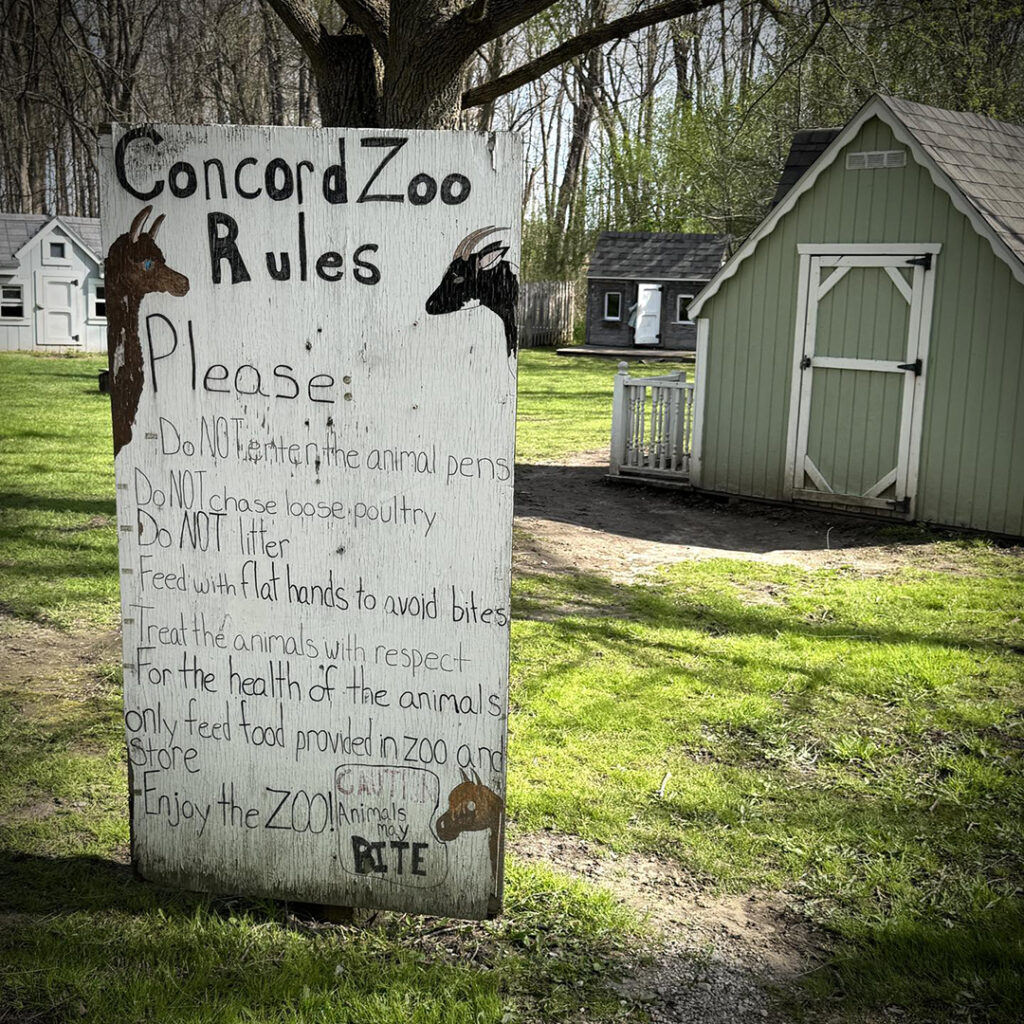 Concord Zoo
Rules
Please:
Do NOT enter the animal pens
Do NOT chase loose poultry
Do NOT litter
Feed with flat hands to avoid bites
Treat the animals with respect
For the health of the animals
only feed food provided in zoo and
store
Enjoy the ZOO!
CAUTION
Animals
may
BITE